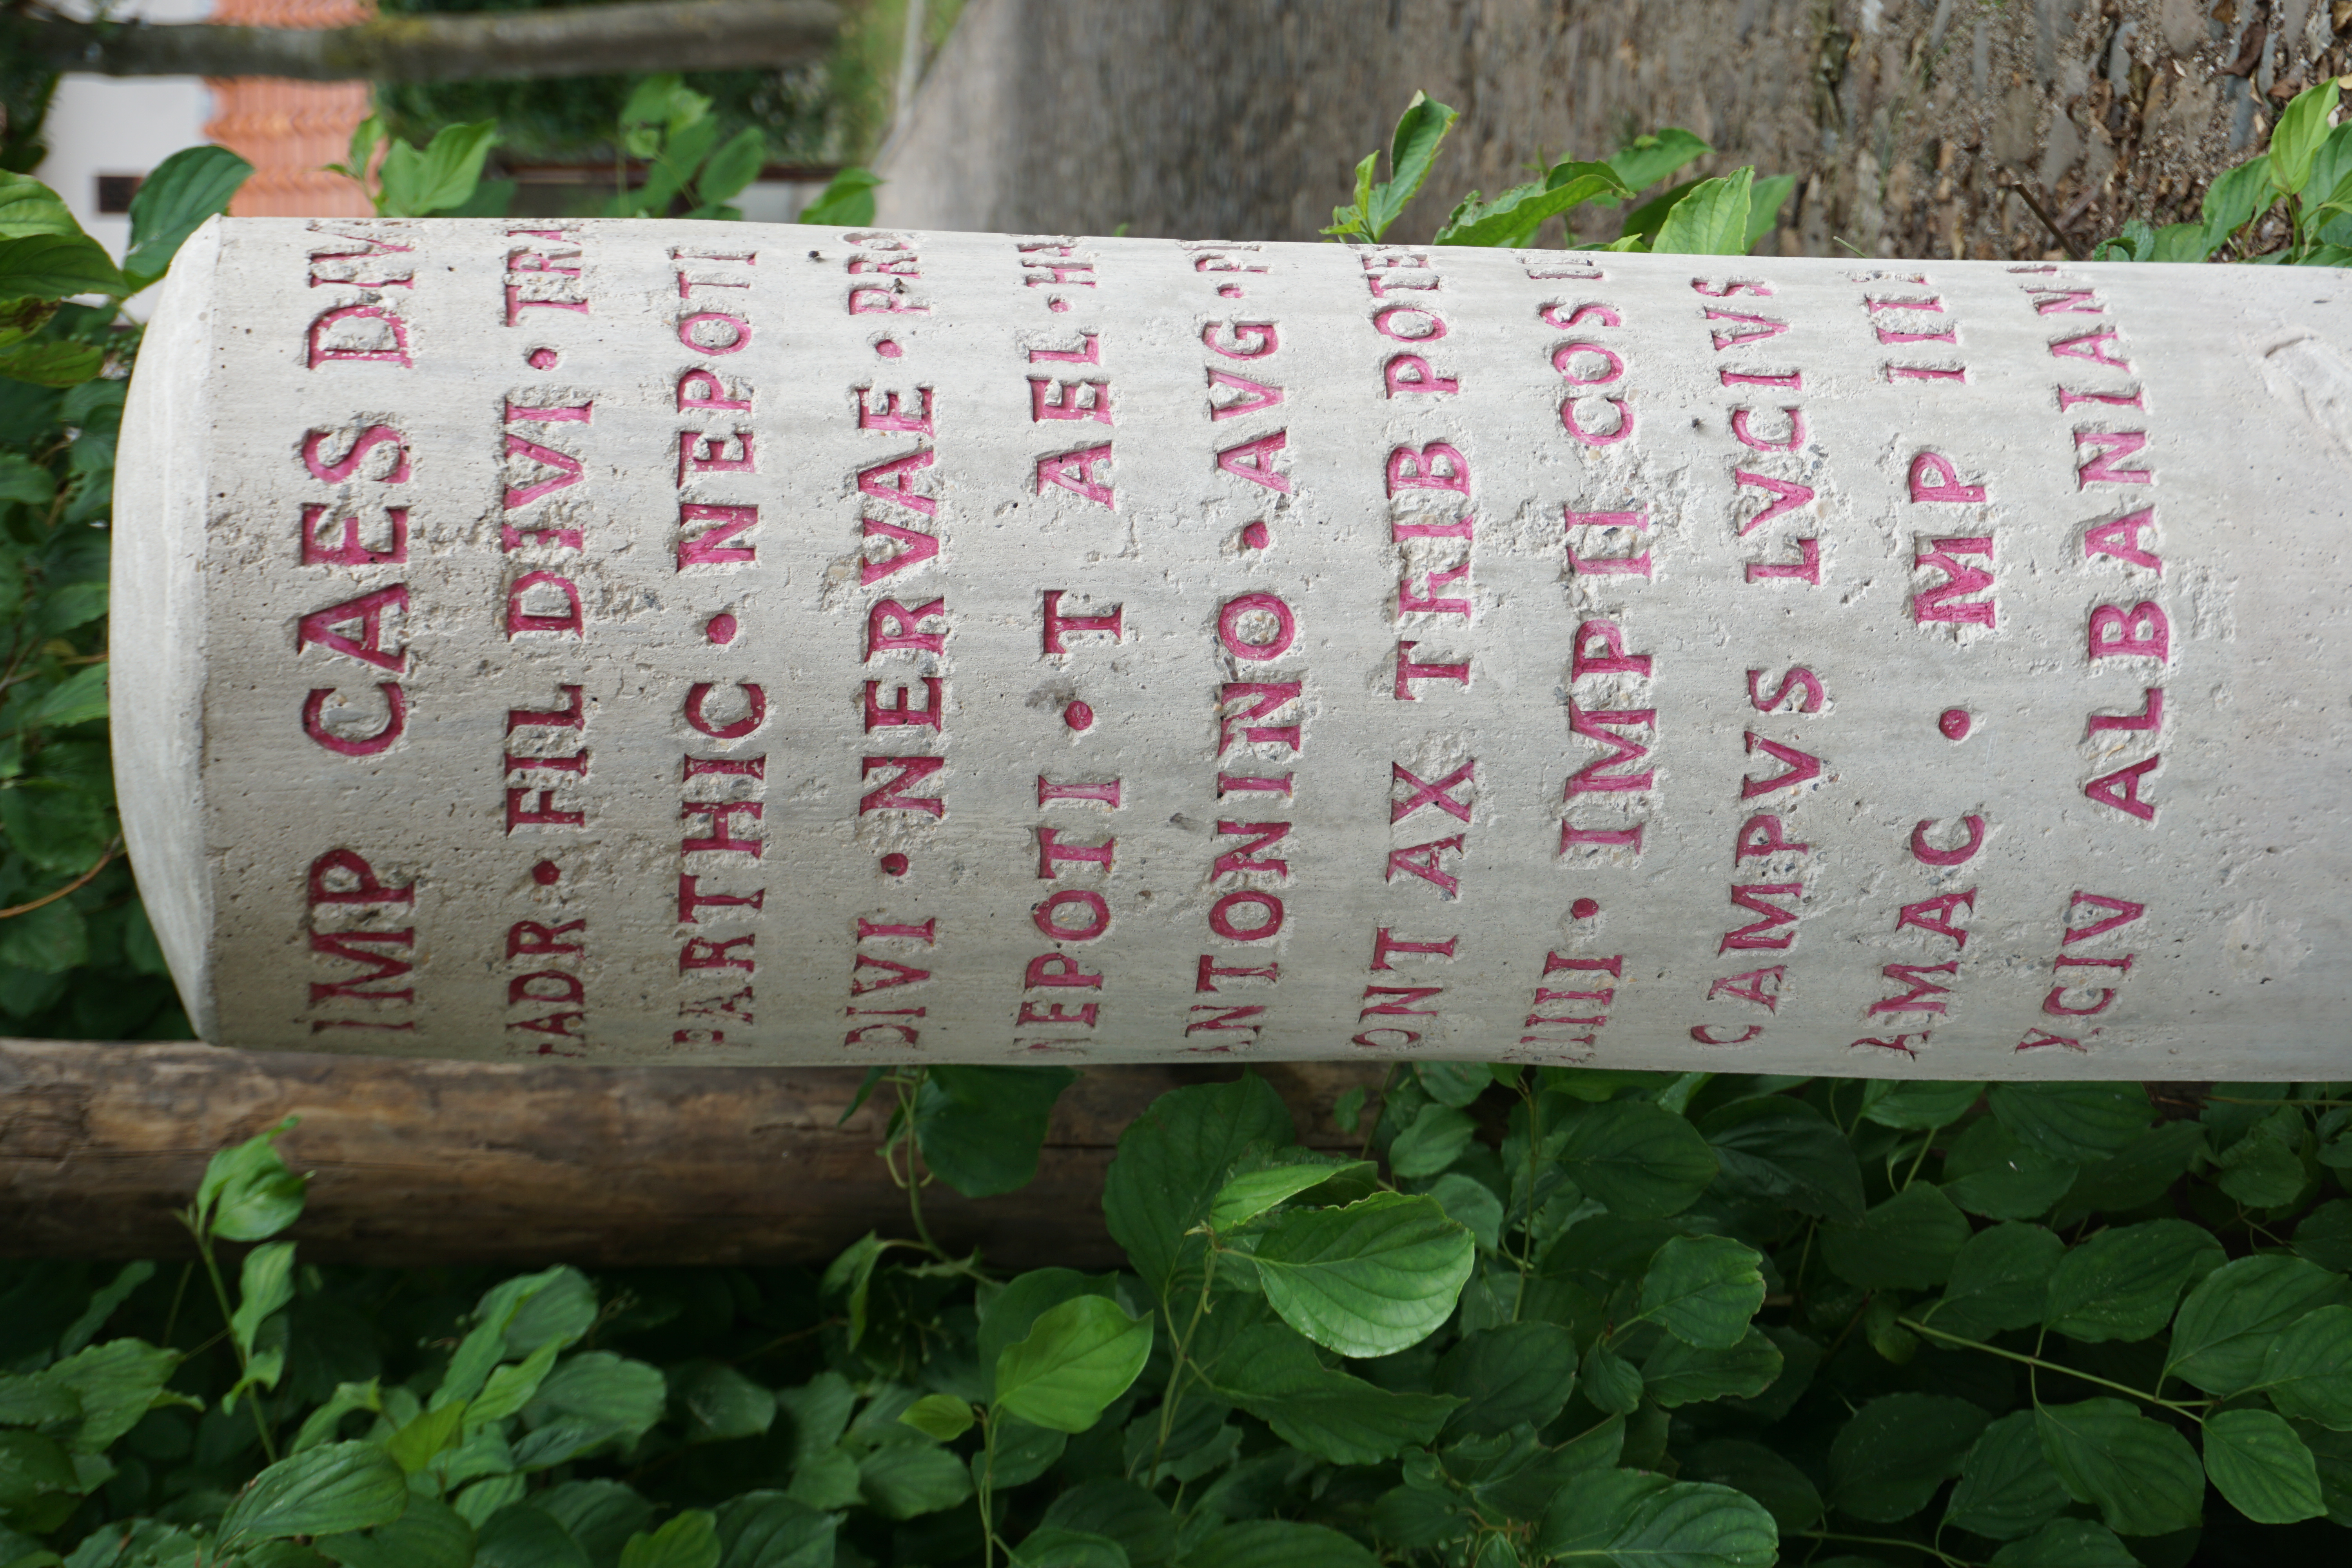 IMP CAES DIVI
HADR • FIL DIVI • TRA
PARTHIC • NEPOTI
DIVI • NERVAE • PRO
NEPOTI • T AEL • HA
ANTONINO • AVG • PI
PONT AX TRIB POTE
IIII • IMP II COS II
CAMPVS LVCIVS
AMAC • MP III
XCIV ALBANIAN